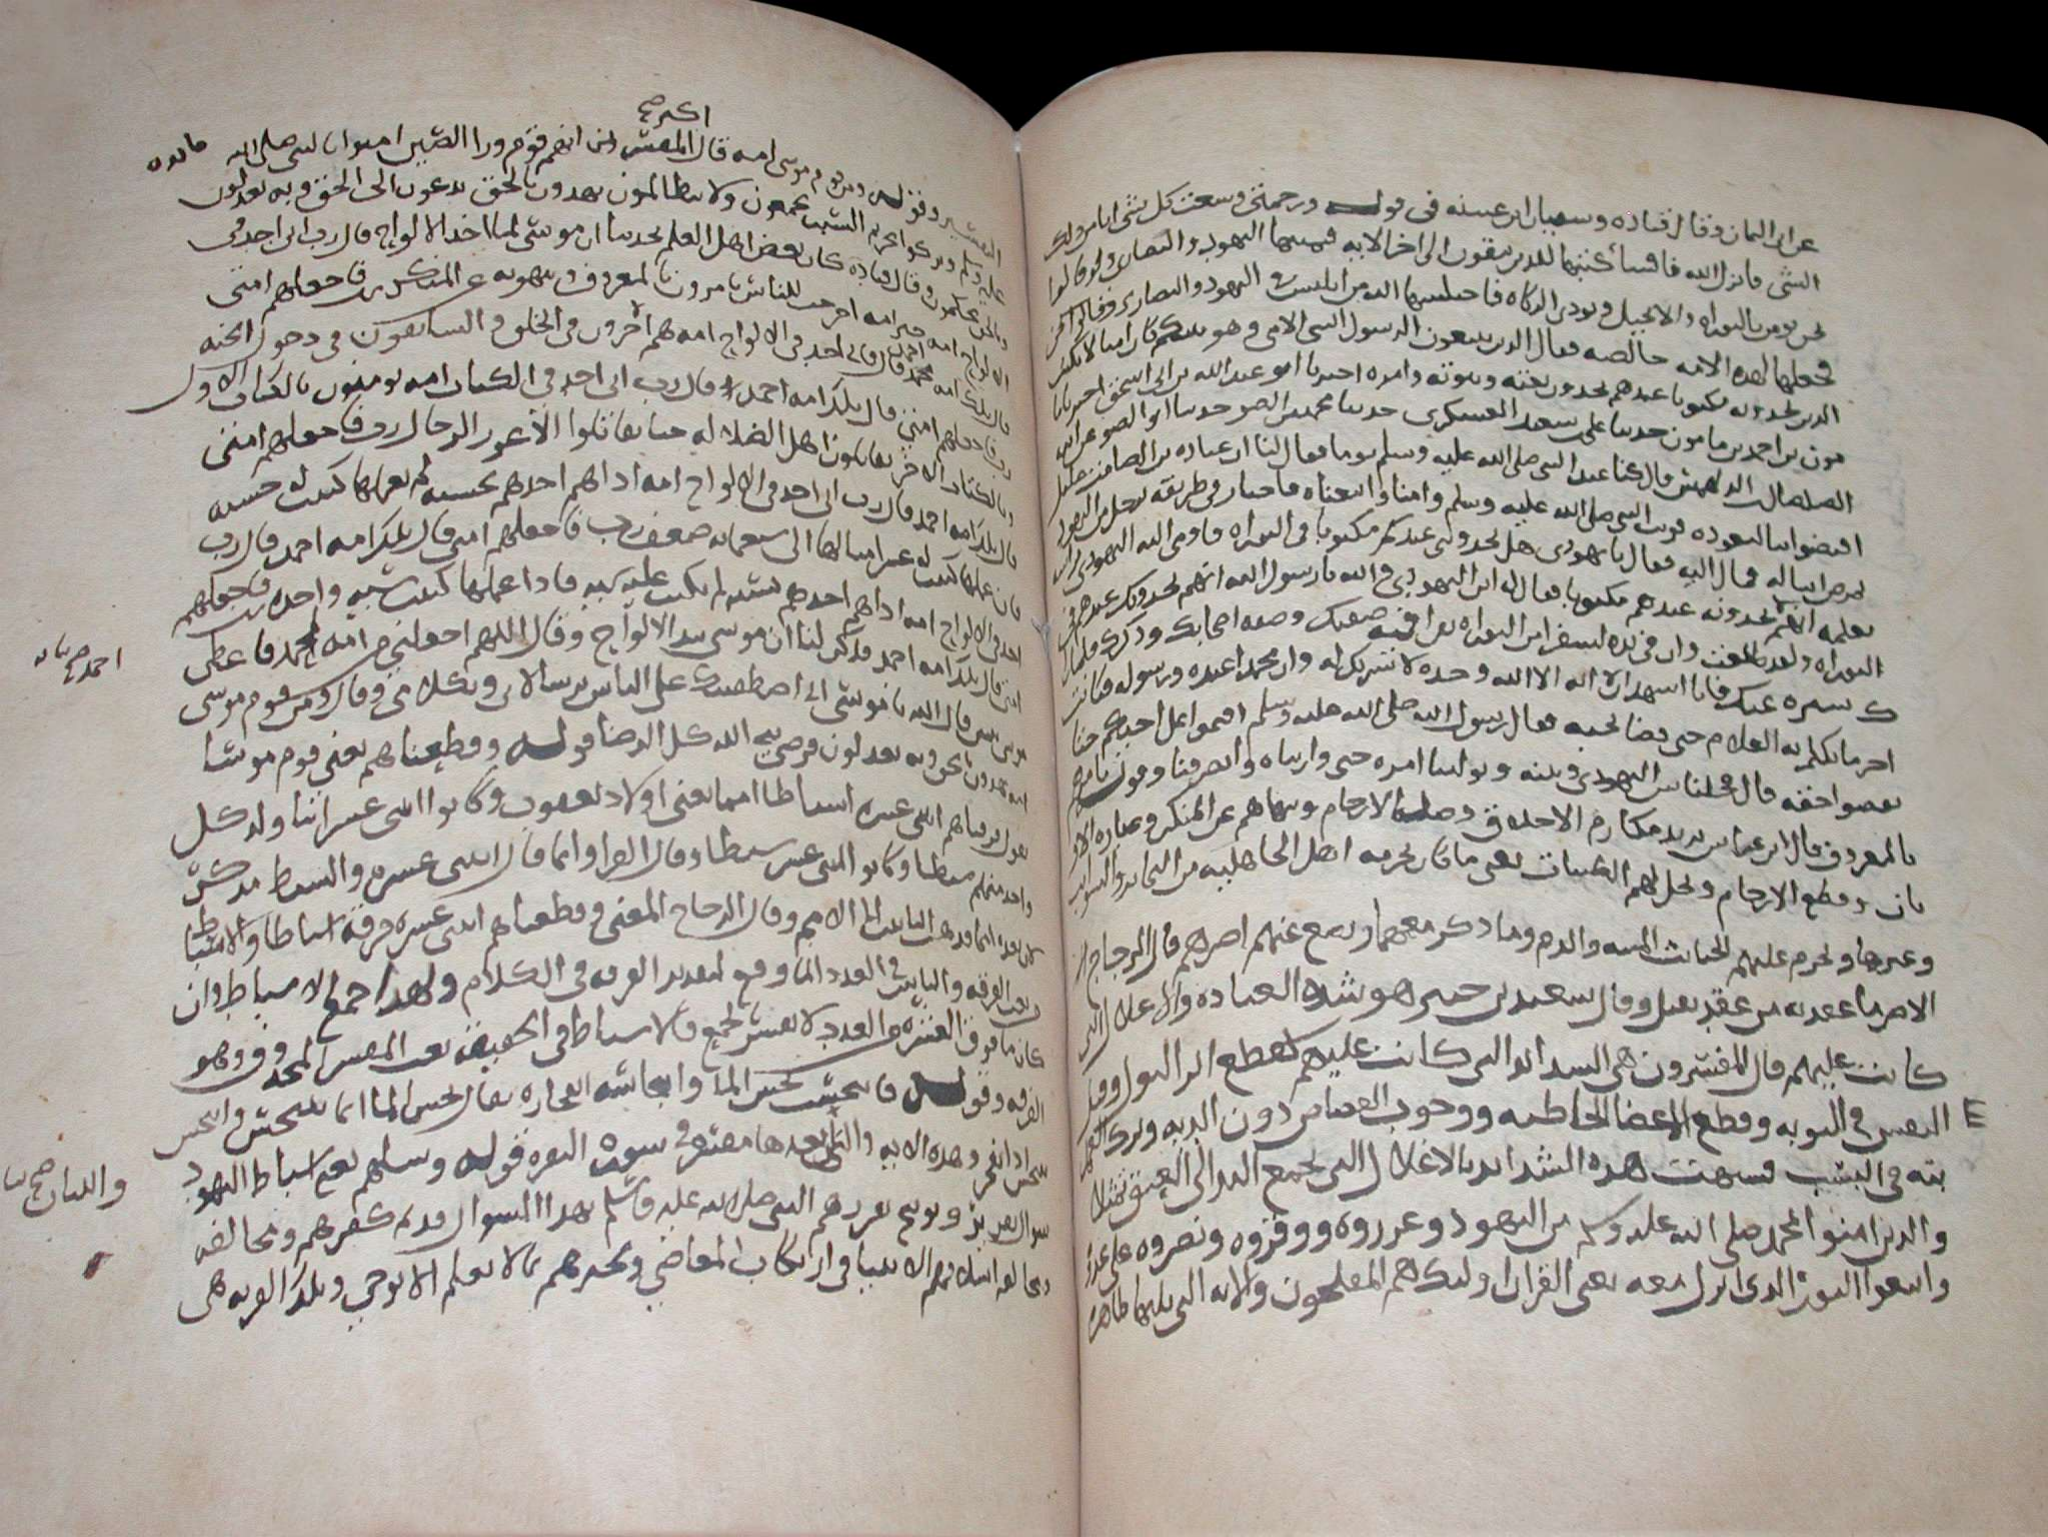 عن ابى اليمان وقال قتاده وسفيان ابن عيينه فى قوله ورحمتى وسعت كل شى انا من ذلك
الشى فانزل الله فساكتبها للذين يتقون الى اخر الايه فتمناها اليهود والنصارى وقالوا
نحن نومن بالتوراه والانجيل ونودى الزكاه فاختلسها الله من ابليس و اليهود والنصارى
فجعلها لهذه الامه خالصه فقال الذين يتبعون الرسول النبى الامى وهو نبيكم كان اميا لا يكتب
الذى يجدونه مكتوبا عندهم يجدون نعته ونبوته وامره اخبرنا ابو عبد الله بن ابى اسحق اخبرنا
مون بن احمد بن مامون حدثنا على بن سعيد العسكرى حدثنا محمد بن
قال كنا عند النبى صلى الله عليه وسلم يوما فقال لنا ان عباده بن الصامت عليل
النبى صلى الله عليه وسلم وقمنا واتبعناه فاجتاز فى طريقه برجل من اليهود
فمال اليه فقال يا يهودى هل تجدونى عندكم مكتوبا فى التوراه فاومى اليه اليهودى براسه
انهم يجدونه عندهم مكتوبا فقال له ابن اليهودى والله يا رسول الله انهم يجدونك عندهم فى
التوراه ولقد طلعت وان فى يده لسفر من التوراه يقرا فيه صفتك وصفه اصحابك وذكرك فلما راك
ستره عنك فانا اشهد ان لا اله الا الله وحده لا شريك له وان محمدا عبده ورسوله فكانت
اخر ما تكلم به الغلام حتى قضا نحبه فقال رسول الله صلى الله عليه وسلم اقيموا على اخيكم حتا
تقضوا حقه قال فحلنا بين اليهودى وبينه وتولينا امره حتى واريناه وانصرفنا وقوله يامرهم
بالمعروف قال ابن عباس يريد مكارم الاخلاق وصله الارحام وينهاهم عن المنكر وعباده الاو
ثان وقطع الارحام ويحل لهم الطيبات يعنى ما كان يحرمه اهل الجاهليه من البحاير والسوايب
وغيرها ويحرم عليهم الخبايث الميته والدم وما ذكر معهما ويضع عنهم اصرهم قال الزجاج
الاصر ما عقدته من عقد ثقيل وقال سعيد بن جبير هو شده العباده والاغلال التى
كانت عليهم قال المفسرون هى الشدايد التى كانت عليهم كقطع اثر البول وقتل
النفس فى التوبه وقطع الاعضا الخاطيه ووجوب القصاص دون الديه وترك العمل
بته فى السبت فسميت هذه الشدايد بالاغلال التى تجمع اليد الى العنق
والذين امنوا بمحمد صلى الله عليه وسلم من اليهود وعزروه ووقروه ونصروه على عدوه
واتبعوا النور الذى انزل معه يعنى القران اوليك هم المفلحون والايه التى تليها ظاهره
اكثر صح
التفسير وقوله ومن قوم موسى امه قال المفسرين انهم قوم ورا الصين امنوا بالنبى صلى الله
عليه وسلم وتركوا تحريم السبت يجمعون ولا يتظالمون يهدون بالحق يدعون الى الحق وبه يعدلون
وبالحق يحكمون وقال قتاده كان بعض اهل العلم يحدثنا ان موسى لما اخذ الالواح قال رب انى اجد فى
الالواح امه خير امه اخرجت للناس يامرون بالمعروف وينهون عن المنكر رب فاجعلهم امتى
قال تلك امه محمد قال رب انى اجد فى الالواح امه هم الاخرون فى الخلق و السابقون فى دخول الجنه
رب فاجعلهم امتى قال تلك امه احمد قال رب انى اجد فى الكتاب امه يومنون بالكتاب الاول
وبالكتاب الاخر يقاتلون اهل الضلاله حتا يقاتلوا الاعور الدجال رب فاجعلهم امتى
قال تلك امه احمد قال رب انى اجد فى الالواح امه اذا هم احدهم بحسنه لم يعملها كتبت له حسنه
فان عملها كتبت له عشر امثالها الى سبعمايه ضعف رب فاجعلهم امتى قال تلك امه احمد قال رب
اجد فى الالواح امه اذا هم احدهم بسيه لم تكتب عليه سيه فاذا عملها كتبت سيه واحده رب فاجعلهم
امتى قال تلك امه احمد فذكر لنا ان موسى نبذ الالواح وقال اللهم اجعلنى من امه محمد فاعطى
قال الله يا موسى انى اصطفيتك على الناس برسالاتى وبكلامى وقال ومن قوم موسى
امه يهدون بالحق وبه يعدلون فرضى نبى الله كل الرضا قوله وقطعناهم يعنى قوم موسا
يقول فرقناهم اثنى عشره اسباطا امما يعنى اولاد يعقوب وكانوا اثنى عشر ابنا ولد كل
واحد منهم سبطا وكانوا اثنى عشر سبطا وقال الفرا وانما قال اثنتى عشره والسبط مذكر
لان بعده امما فذهب التانيث الى الامم وقال الزجاج المعنى وقطعناهم اثنتى عشره فرقه اسباطا والاسباط
نعت الفرقه والتانيث فى العدد انما وقع لتقدير الفرقه فى الكلام ولهذا جمع الاسباط وان
كان ما فوق العشره من العدد لا يفسر بالجمع فالاسباط فى الحقيقه نعت المفسر المحذوف وهو
الفرقه وقوله فانبجست بجس الما وانبجاسه انفجاره يقال بجس الما انما ينبجس وانبجس
ينبجس اذا انفجر وهذه الايه والتى بعدها مفسر فى سوره البقره قوله وسلهم يعنى اسباط اليهود
سوال تقرير وتوبيخ يقررهم النبى صلى الله عليه وسلم بهذا السوال قديم كفرهم ومخالفه
ومخالفه اسلافهم الانبيا فى ارتكاب المعاصى ويخبرهم بما لا يعلم الا بوحى وتلك القريه هى
احمد صح